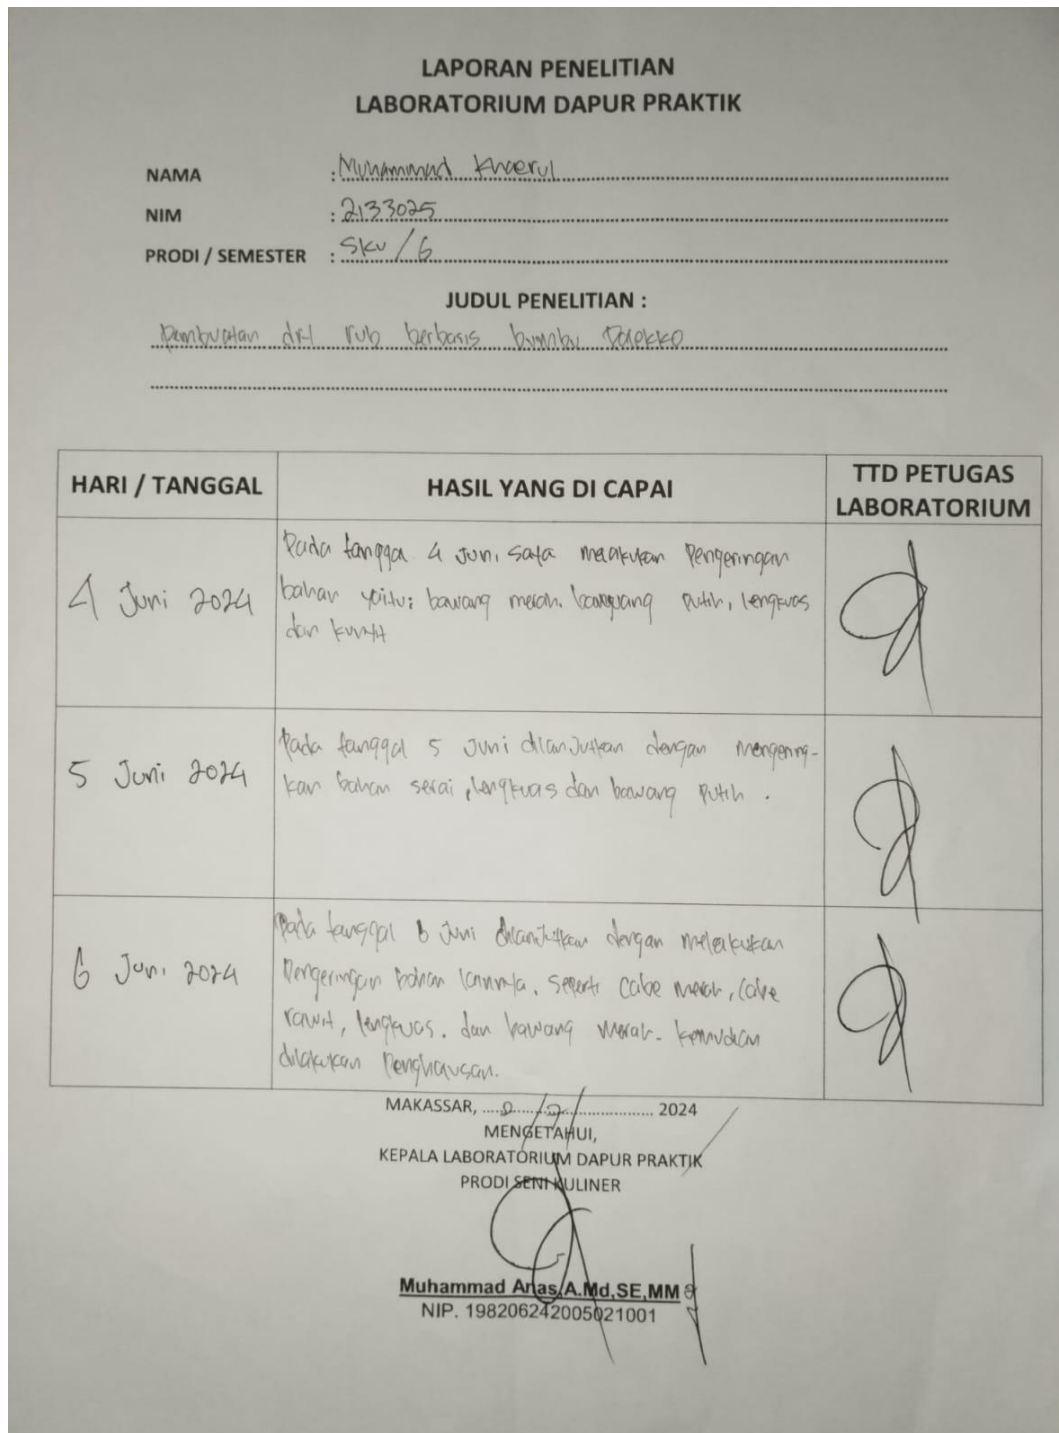 LAPORAN PENELITIAN
LABORATORIUM DAPUR PRAKTIK
NAMA : Muhammad Khaerul
NIM : 2133025
PRODI / SEMESTER : SKU / 6
JUDUL PENELITIAN :
Pembuatan dry rub berbasis bumbu Palekko
HARI / TANGGAL HASIL YANG DI CAPAI TTD PETUGAS LABORATORIUM
4 Juni 2024
Pada tanggal 4 Juni saya melakukan Pengeringan
bahan yaitu: bawang merah, bawang putih, lengkuas
dan kunyit
5 Juni 2024
Pada tanggal 5 Juni dilanjutkan dengan mengering-
kan bahan serai, lengkuas dan bawang Putih.
6 Juni 2024
Pada tanggal 6 Juni dilanjutkan dengan melakukan
Pengeringan bahan lainnya. Seperti Cabe merah, Cabe
rawit, lengkuas. dan bawang merah. kemudian
dilakukan Penghausan.
MAKASSAR, 2024
MENGETAHUI,
KEPALA LABORATORIUM DAPUR PRAKTIK
PRODI SENI KULINER
Muhammad Anas,A.Md,SE,MM
NIP. 198206242005021001